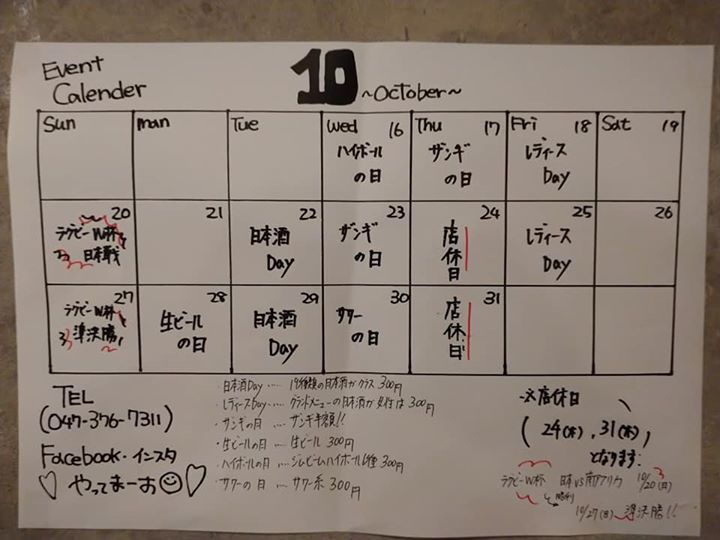 Event
Calender
10 ~October~
Sun man Tue Wed 16 Thu 17 Fri 18 Sat 19
ハイボール
の日
ザンギ
の日
レディース
Day
20 21 22 23 24 25 26
ラグビーW杯
日本戦
日本酒
Day
ザンギ
の日
店休日
レディース
Day
27 28 29 30 31
ラグビーW杯
準決勝!
生ビール
の日
日本酒
Day
サワー
の日
店休日
TEL
(047-376-7311)
Facebook・インスタ
♡やってまーす☺♡
・日本酒Day‥‥ 19種類の日本酒が グラス 300円
・レディースDay‥‥ グランドメニューの日本酒が 女性は 300円
・ザンギの日 ‥‥ ザンギ半額!!
・生ビールの日 ‥‥ 生ビール 300円
・ハイボールの日 ‥‥ ジムビームハイボール 300円
・サワーの日 ‥‥ サワー系 300円
店休日
(24(木), 31(木),
となります。
ラグビーW杯 日本 vs 南アフリカ 10/20(日)
勝利
10/27(日) 準決勝!!